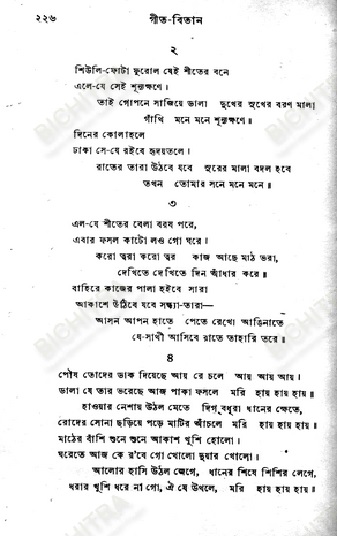 ২২৬ গীত-বিতান
২
শিউলি-ফোটা ফুরোল যেই শীতের বনে
এলে-যে সেই শূন্যক্ষণে।
তাই গোপনে সাজিয়ে ডালা দুখের সুখের বরণ মালা
গাঁথি মনে মনে শূন্যক্ষণে॥
দিনের কোলাহলে
ঢাকা সে-যে রইবে হৃদয়তলে।
রাতের তারা উঠবে যবে সুরের মালা বদল হবে
তখন তোমার সনে মনে মনে॥
৩
এল-যে শীতের বেলা বরষ পরে,
এবার ফসল কাটো লও গো ঘরে॥
করো ত্বরা করো ত্বর কাজ আছে মাঠ ভরা,
দেখিতে দেখিতে দিন আঁধার করে॥
বাহিরে কাজের পালা হইবে সারা
আকাশে উঠিবে যবে সন্ধ্যা-তারা—
আসন আপন হাতে পেতে রেখো আঙিনাতে
যে-সাথী আসিবে রাতে তাহারি তরে॥
৪
পৌষ তোদের ডাক দিয়েছে আয় রে চলে আয় আয় আয়।
ডালা যে তার ভরেছে আজ পাকা ফসলে মরি হায় হায় হায়॥
হাওয়ার নেশায় উঠল মেতে দিগ্‌বধূরা ধানের ক্ষেতে,
রোদের সোনা ছড়িয়ে পড়ে মাটির আঁচলে মরি হায় হায় হায়॥
মাঠের বাঁশি শুনে শুনে আকাশ খুশি হোলো।
ঘরেতে আজ কে র'বে গো খোলো দুয়ার খোলো॥
আলোর হাসি উঠল জেগে, ধানের শিষে শিশির লেগে,
ধরার খুশি ধরে না গো, ঐ যে উথলে, মরি হায় হায় হায়॥
BICHITRA